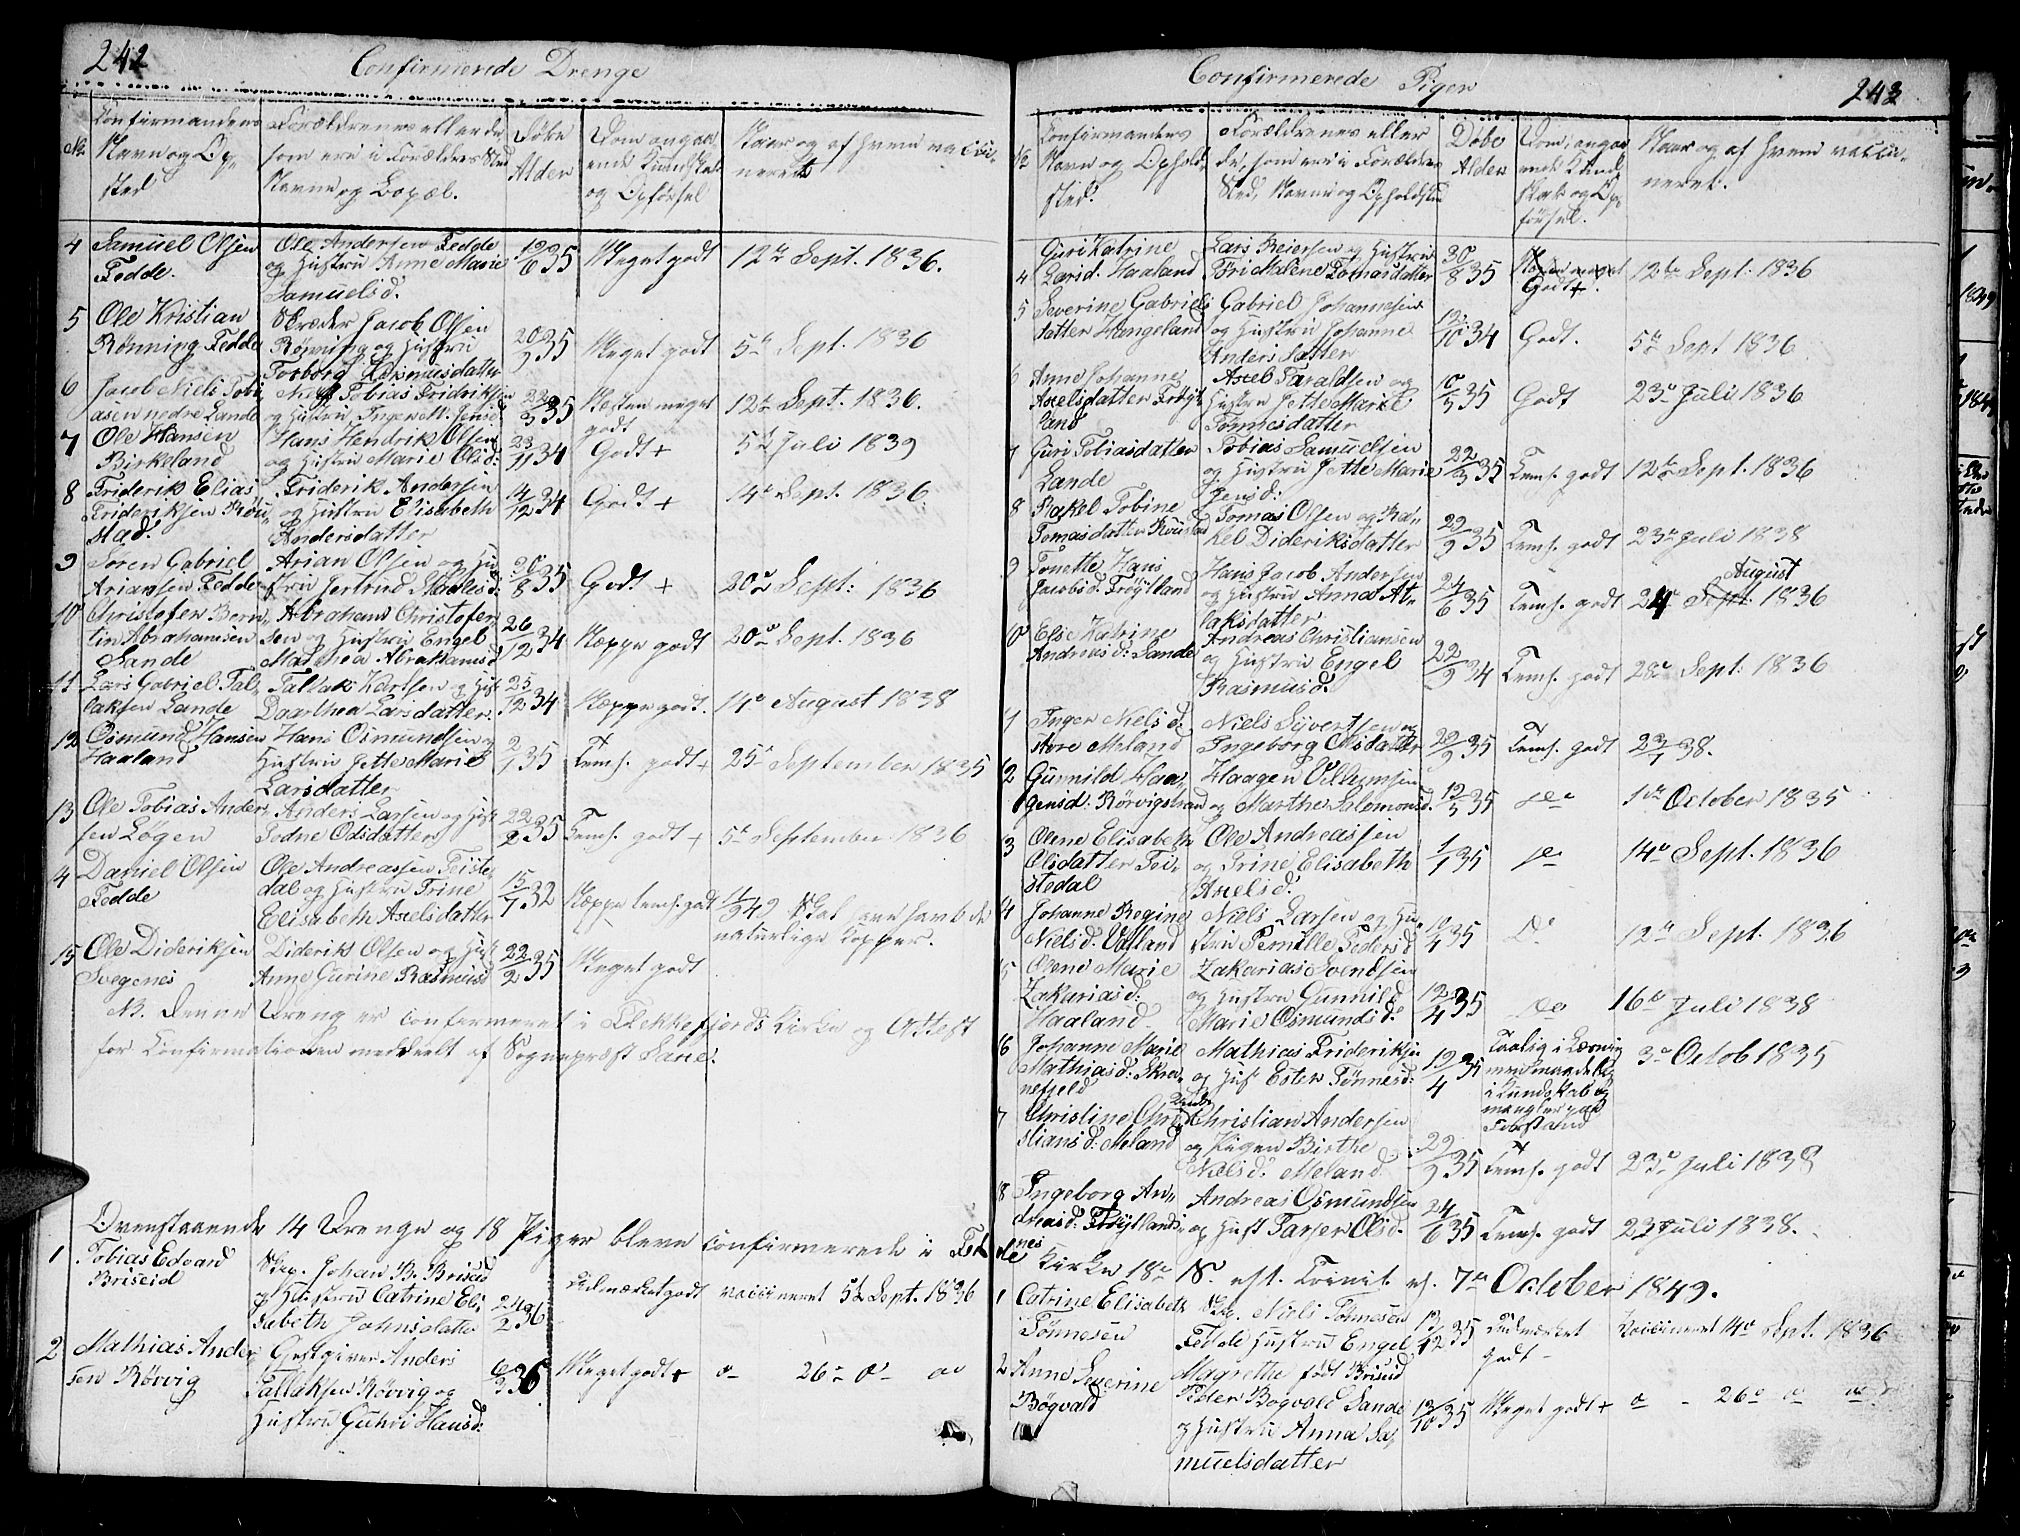 242
Confirmerede Drenge
No
Confirmandens
Navn og Op-
sted
Forældrenes eller de
som ere i Forældres Sted
Navne og Bopæl.
Døbe
Alder
Dom angaa-
ende Kundskab
og Opførsel
Naar og af hvem vacci-
neret
4 Samuel Olsen
Fedde.
Ole Andersen Fedde
og Hustru Anne Marie
Samuelsd.
12/6 35
Meget godt
12te Sept. 1836.
5 Ole Kristian
Rønning Fedde
Skræder Jacob Olsen
Rønning og Hustru
Torborg Rasmusdatter
20/9 35
Meget godt
5te Sept. 1836
6 Jacob Niels Tobi-
asen nedre Lande
Tobias Fridriksen
og Hustru
22/3 35
Næsten meget
godt
12te Sept. 1836.
7 Ole Hansen
Birkeland
Hans Hendrik Olsen
og Hustru Marie Olsd:
23/11 34
Godt +
5te Juli 1839
8 Friderik Elias
Frideriksen Røu-
stad.
Friderik Andersen
og Hustru Elisabeth
Andersdatter
14/12 34
Godt +
14de Sept. 1836.
9 Søren Gabriel
Ariansen Fedde
Arian Olsen og Hu-
stru Jertrud Madlesd:
20/8 35
Godt +
20de Sept: 1836
10 Christofer Bern-
tin Abrahamsen
Sande
Abraham Christofer-
sen og Hustru Engel
Mathea Abrahamsd
26/12 34
Næppe godt
20de Sept. 1836
11 Lars Gabriel Tal-
laksen Lande
Tallak Karlsen og Hust
Daarthea Larsdatter.
25/12 34
Næppe godt.
14de August 1838
12 Osmund Hansen
Haaland
Hans Osmundsen og
Hustru Jette Marie
Larsdatter
2/1 35
T
Temh. godt +
25de September 1835
13 Ole Tobias Ander-
sen Løgen
Anders Larsen og Hust
Sodne Odsdatter
22/2 35
T
Temh. godt +
5te September 1836
4 Daniel Olsen
Fedde
Ole Andreassen Feiste-
dal og Hustru Trine
Elisabeth Axelsdatter
15/7 32
Næppe temh. godt
11/9 49 Skal have havt de
naturlige Kopper.
15 Ole Dideriksen
Svegenes
Diderik Olsen og Hust
Anne Gurine Rasmusd
22/2 35
Meget godt
N. Denne Dreng er confirmeret i Flekkefjords Kirke og Attest
for Confirmationen meddeelt af Sognepræst Lane.
Ovenstaaende 14 Drenge og 18 Piger bleve confirmerede i Fed
1 Tobias Edvard
Briseid
Skp. Johan B. Briseid
og Hustru Catrine Eli-
sabeth Johnsdatter
24/2 36
Udmærket godt
vaccineret 5te Sept. 1836
2 Mathias Ander-
sen Rørvig
Gestgiver Anders
Tallaksen Rørvig og
Hustru Guhri Hansd:
6/3 36
Meget godt +
o- 26- o- oo
Confirmerede Piger
243
No
Confirmandens
Navn og Ophold-
sted.
Forældrenes eller
de, som ere i Forældres
Sted, Navne og Opholdsted
Døbe
Alder
Dom, angaa-
ende Kund-
skab og Op-
førsel.
Naar og af hvem vacci-
neret.
4 Guri Katrine
Larsd. Haaland
Lars Reiersen og Hustru
Tri Malene Tomasdatter
30/8 35
Næsten meget
Godt +.
12te Sept: 1836
5 Severine Gabriels-
datter Hængeland
Gabriel Johannesen
og Hustru Johanne
Andersdatter
12/10 34
Godt.
5te Sept 1836
6 Anne Johanne
Axelsdatter Frøyt-
land
Axel Taraldsen og
Hustru Jette Marie
Tønnesdatter
10/5 35
Godt
23de Juli 1836
7 Guri Tobiasdatter
Lande
Tobias Samuelsen
og Hustru Jette Marie
Jensd:
22/3 35
Temh. godt
12te Sept. 1836
8 Rakel Tobine
Tomasdatter Røustad
Tomas Olsen og Ra-
kel Dideriksdatter
29/9 35
Temh. godt
23de Juli 1838
9 Tonette Hans
Jacobsd. Frøytland
Hans Jacob Andersen
og Hustru Anna At-
laksdatter
24/6 35
T
Temh. godt
August
24de Sept. 1836
0 Else Katrine
Andreasd: Sande
Andreas Christiansen
og Hustru Engel
Rasmusd.
22/9 34
T
Temh. godt
28de Sept: 1836
1 Inger Nielsd:
store Meland
Niels Syvertsen og
Ingeborg Olsdatter
22/2 35
T
Temh. godt
23/7 38.
2 Gunnild Haa-
gensd: Rørvigstrand
Haagen Villumsen
og Marthe Salomonsd.
12/5 35
do
1ste October 1835
3 Olene Elisabeth
Olsdatter Fei-
stedal
Ole Andreassen
og Trine Elisabeth
Axelsd.
1/1 35
do
14de Sept. 1836
4 Johanne Regine
Nielsd: Vatland
Niels Larsen og Hu-
stru Pernille Pedersd
10/4 35
Do
12te Sept. 1836
5 Olene Marie
Zakariasd:
Haaland
Zakarias Svendsen
og Hustru Gunnild
Marie Osmundsd:
12/4 35
do
16de Juli 1838
6 Johanne Marie
Mathiasd: Skra-
nefjeld
Mathias Frideriksen
og Hust Ester Tønnesd:
19/4 35
Taalig i Læsning
men maadelig
i Kundskab og
mangler paa
Forstand
3de Octob 1835
7 Christine Chri-
stiansd: Meland
Christian Andersen
og Pigen Birthe
Nielsd: Meland
29/9 35
T
Temh. godt
23de Juli 1838
18 Ingeborg An-
driasd: Frøytland
Andreas Osmundsen
og Hust Tarjer Olsd.
24/6 35
Temh. godt
23 Juli 1838.
de nes Kirke 18de S. eft. Trinit. d. 7de October 1849.
1 Catrine Elisabeth
Tønnesen
Skp. Niels Tønnesen
Hustru Engel
Magrethe født Briseid
13/12 35
Udmærket
godt
Vaccineret 14de Sept. 1836
2 Anne Severine
Bøgvald
Peder Bøgvald Sande
og Hustru Anna Sa-
muelsdatter
13/10 35
Meget godt +
o - 26de o